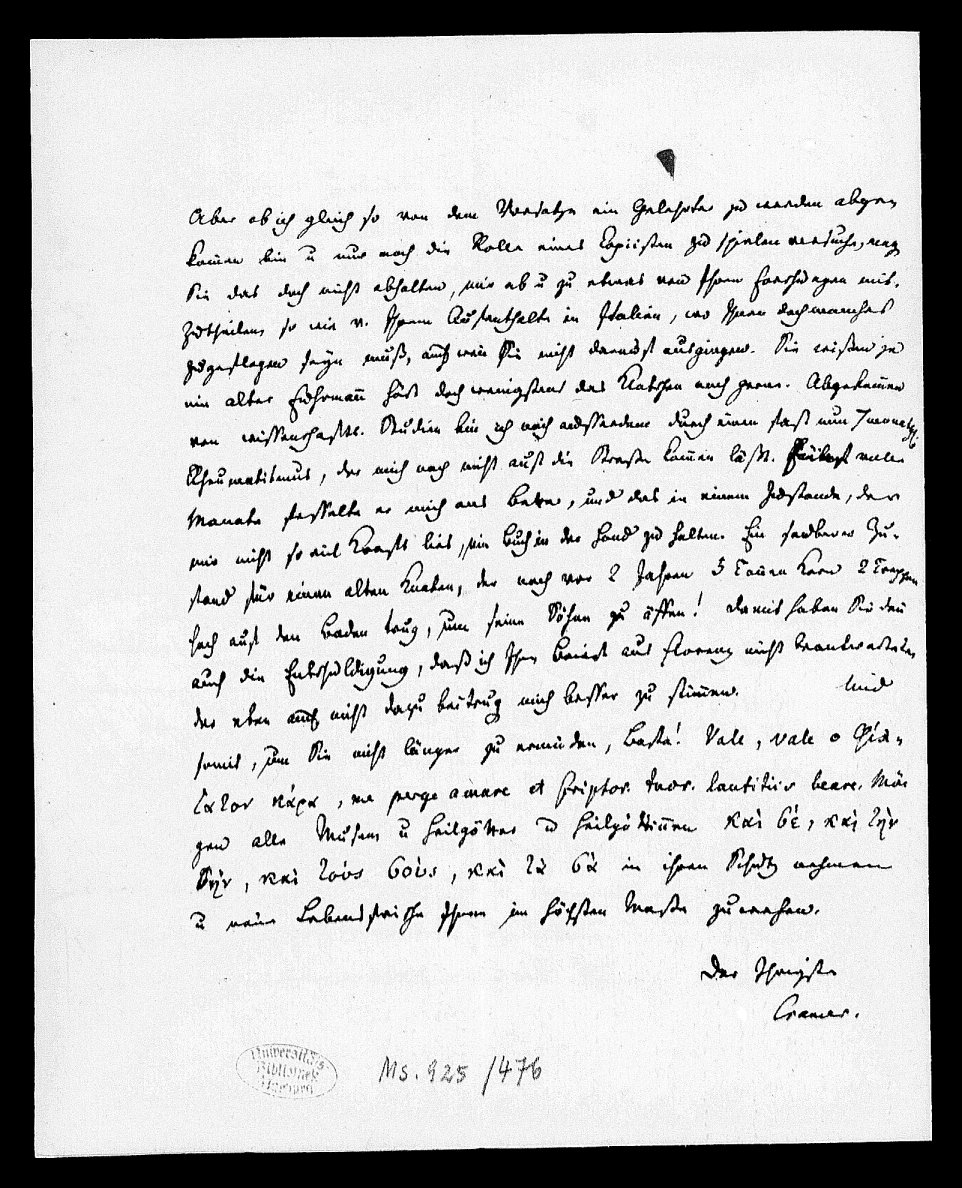 Aber ob ich gleich so von dem Vorsatze ein Gelehrter zu werden abge-
kom̄en bin u nur noch die Rolle eines Copisten zu spielen versuche, mag
Sie das doch nicht abhalten, mir ab u zu etwas von Ihren Forschungen mit-
zutheilen, so wie v. Ihrem Aufenthalte in Italien, wo Ihnen doch manches
zugeflogen seyn muß, auch wen̄ Sie nicht darauf ausgingen. Sie wißen ja
ein alter Fuhrman̄ hört doch wenigstens das Klatschen noch gerne. Abgekom̄en
von wissenschaftl. Studien bin ich noch ausserdem durch einen fast nun 7 monatl.
Rheumatismus, der mich noch nicht auf die Strasse kom̄en läßt. volle
Monate fesselte er mich ans Bette, und das in einem Zustande, der
mir nicht so viel Kraft lies, ein Buch in der Hand zu halten. Ein sauberer Zu-
stand für einen alten Knaben, der noch vor 2 Jahren 5 Ton̄en Korn 2 Treppen
hoch auf den Boden trug, um seine Söhne zu äffen! Damit haben Sie den̄
auch die Entschuldigung, daß ich Ihren Brief aus Florenz nicht beantwortete,
der eben auch nicht dazu beitrug mich besser zu stim̄en. Und
somit, um Sie nicht länger zu ermüden, Basta! Vale, vale o φίλ-
τατον κάρα, me perge amare et scriptor. tuor. lautitiis beare. Mö-
gen alle Musen u Heilgötter u Heilgöttin̄en καὶ σέ, καὶ τὴν
σὴν, καὶ τοὺς σούς, καὶ τὰ σὰ in ihren Schutz nehmen
u neue Lebensfrische Ihnen im höchsten Maße zuwehen.
Der Ihrigste
Cramer.
Universitäts-
Bibliothek
Ms. 925 /476